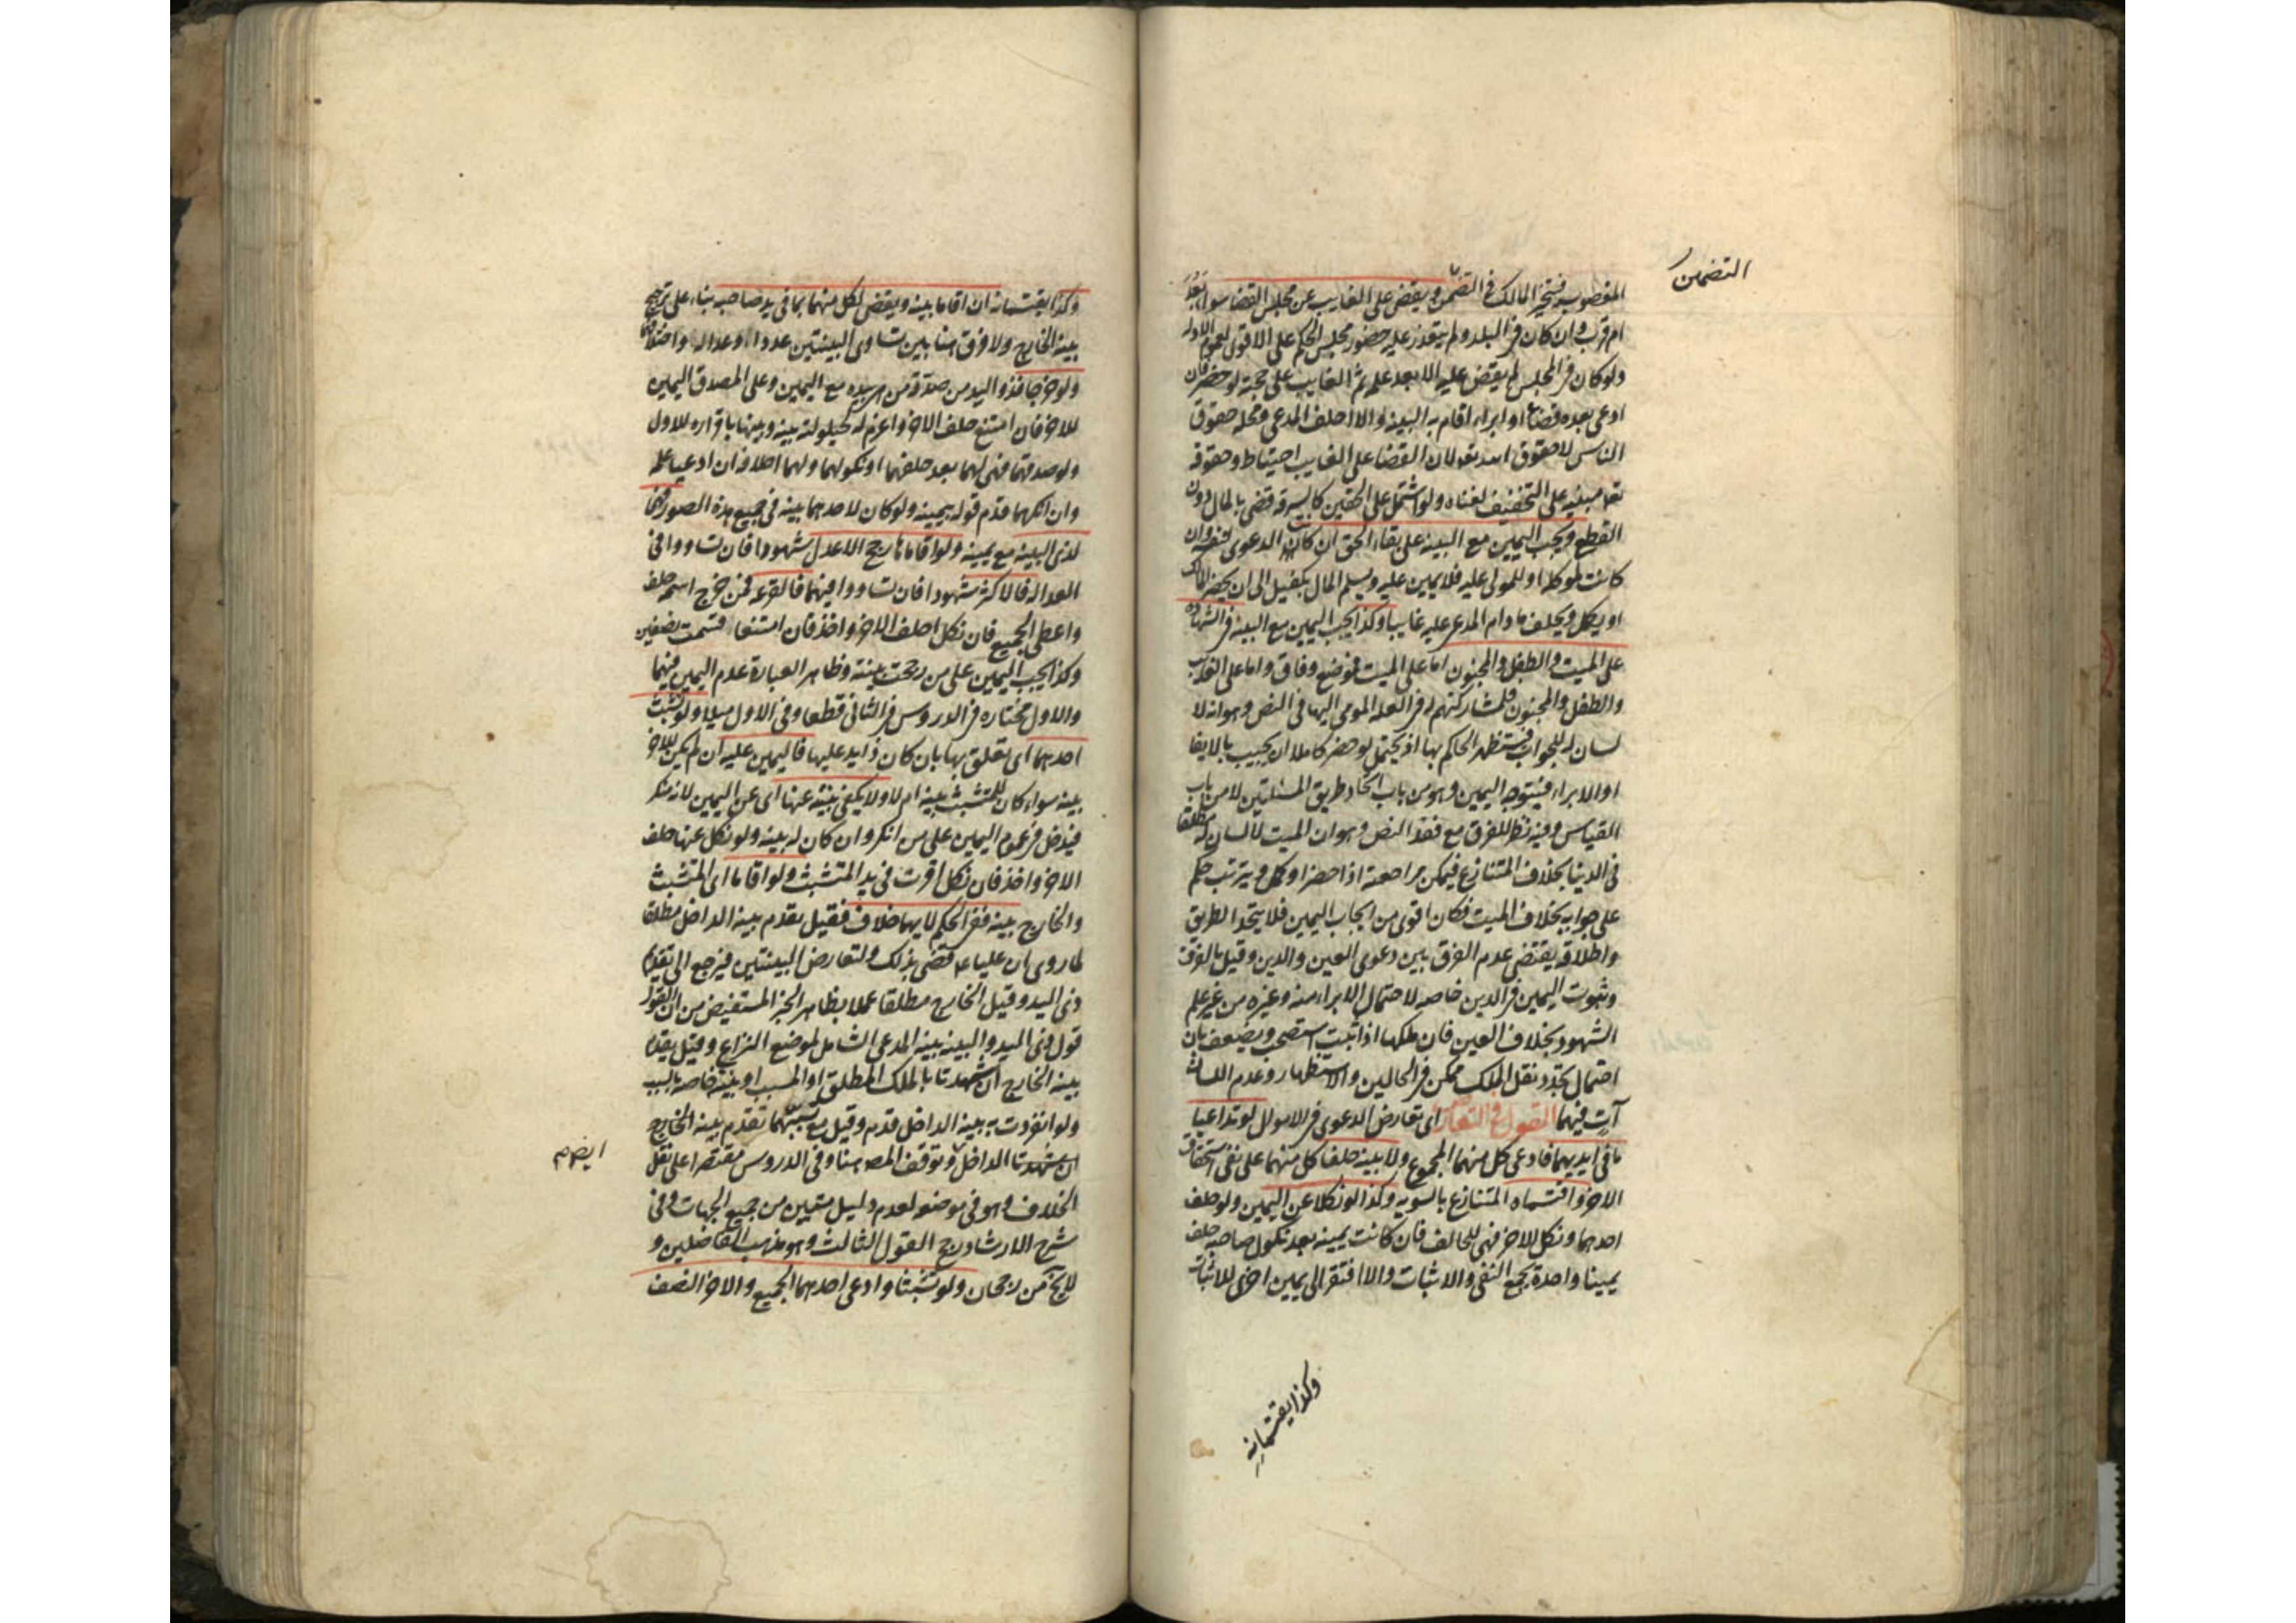 التضمين
المغصوب فيتخير المالك في التضمين ويقضى على الغايب عن مجلس القضا سواء بَعُدَ
ام قرب وان كان في البلد ولم يتعذر عليه حضور مجلس الحكم على الاقوى لعموم الادلة
ولو كان في المجلس لم يقض عليه الا بعد علمه ثم الغايب على حجته لو حضر فان
ادعى بعده قضاء او ابراء اقام به البينة والا احلف المدعي ومحله حقوق
الناس لا حقوق الله تعالى لان القضا على الغايب احتياط وحقوقه
تعا مبنية على التخفيف لغناه ولو اشتمل على الحقين كالسرقة قضى بالمال دون
القطع ويجب اليمين مع البينة على بقاء الحق ان كانت الدعوى لنفسه وان
كانت لموكله او للمولى عليه فلا يمين عليه ويسلم المال بكفيل الى ان يحضر المالك
او يكمل ويحلف مادام المدعى عليه غايبا وكذا يجب اليمين مع البينة في الشهادة
على الميت والطفل والمجنون اما على الميت فموضع وفاق واما على الغايب
والطفل والمجنون فلمشاركتهم له في العلة المومى اليها في النص وهو انه لا
لسان له للجواب فيستظهر الحاكم بها اذ يحتمل لو حضر كاملا ان يجيب بالايفا
او الابراء فيتوجه اليمين وهو من باب اتحاد طريق المسئلتين لا من باب
القياس وفيه نظر للفرق مع فقد النص وهو ان الميت لا لسان له مطلقا
في الدنيا بخلاف المتنازع فيمكن مراجعته اذا حضر او كمل ويترتب حكم
على جوابه بخلاف الميت فكان اقوى من ايجاب اليمين فلا يتحد الطريق
واطلاقه يقتضي عدم الفرق بين دعوى العين والدين وقيل بالفرق
وثبوت اليمين في الدين خاصه لاحتمال الابراء منه وغيره من غير علم
الشهود بخلاف العين فان ملكها اذا ثبت استصحب ويضعف بان
احتمال تجدد نقل الملك ممكن في الحالين والاستظهار وعدم اللسان
آتٍ فيهما القول في التعارض اى تعارض الدعوى في الاموال لو تداعيا
ما في ايديهما فادعى كل منهما المجموع ولا بينه حلفا كل منهما على نفي استحقاق
الاخر واقتسماه المتنازع بالسويه وكذا لو نكلا عن اليمين ولو حلف
احدهما ونكل الاخر فهى للحالف فان كانت يمينه بعد نكول صاحبه حلف
يمينا واحدة يجمع النفي والاثبات والا افتقر الى يمين اخرى للاثبات
وكذا يقتسمانه
وكذا يقتسمانه ان اقاما بينه ويقضى لكل منهما بما في يد صاحبه بناء على ترجيح
بينه الخارج ولا فرق هنا بين تساوى البينتين عددا وعدالة واختلافهما
ولو خرجا فذو اليد من صدّقه من هي بيده مع اليمين وعلى المصدق اليمين
للاخر فان امتنع حلف الاخر واغرم له لحيلولته بينه وبينها باقراره للاول
ولو صدقهما فهى لهما بعد حلفهما او نكولهما ولهما احلافه ان ادعيا علمه
وان انكرهما قدم قوله بيمينه ولو كان لاحدهما بينه في جميع هذه الصور فهما
لذى البينه مع يمينه ولو اقاماها رجح الاعدل شهودا فان تساووا في
العداله فالاكثر شهودا فان تساووا فيهما فالقرعة فمن خرج اسمه حلف
واعطى الجميع فان نكل احلف الاخر واخذ فان امتنعا قسمت نصفين
وكذا يجب اليمين على من رجحت بينته وظاهر العبارة عدم اليمين فيهما
والاول مختاره في الدروس في الثاني قطعا وفي الاول ميلا ولو تشبث
احدهما اى تعلق بها بان كان ذا يد عليها فاليمين عليه ان لم يكن للاخر
بينه سواء كان للمتشبث بينه ام لا ولا يكفي بينته عنها اى عن اليمين لانه منكر
فيدخل في عموم اليمين على من انكر وان كان له بينه ولو نكل عنها حلف
الاخر واخذ فان نكل اقرت في يد المتشبث ولو اقاما اى المتشبث
والخارج بينه ففي الحكم لايهما خلاف فقيل يقدم بينه الداخل مطلقا
لما روى ان عليا ع قضى بذلك ولتعارض البينتين فيرجع الى تقديم
ذى اليد وقيل الخارج مطلقا عملا بظاهر الخبر المستفيض من ان القول
قول ذى اليد والبينه بينه المدعى الشامل لموضع النزاع وقيل يقدم
بينه الخارج ان شهدتا بالملك المطلق او المسبب او بينته خاصه بالسبب
ولو انفردت به بينه الداخل قدم وقيل مع تسبيبهما تقدم بينه الخارج
ايضا م
ان شهدتا الداخل وتوقف المص هنا وفي الدروس مقتصرا على نقل
الخلاف وهو في موضعه لعدم دليل متين من جميع الجهات وفي
شرح الارشاد رجح القول الثالث وهو مذهب الفاضلين و
لا يخ من رجحان ولو تشبثا وادعى احدهما الجميع والاخر النصف